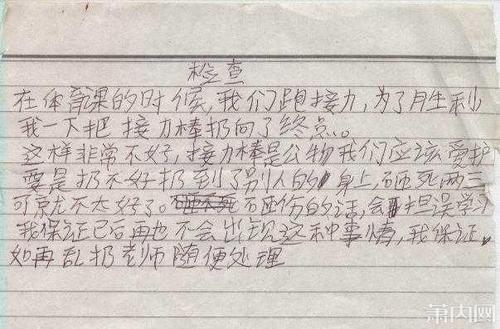 检查
在体育课的时候,我们跑接力,为了胜利
我一下把接力棒扔向了终点。
这样非常不好,接力棒是公物我们应该爱护
要是扔不好扔到了别人的身上,砸死两三
可就不太好了。砸伤的话,会耽误学习
我保证已后再也不会出现这种事情,我保证。
如再乱扔老师随便处理
萧内网